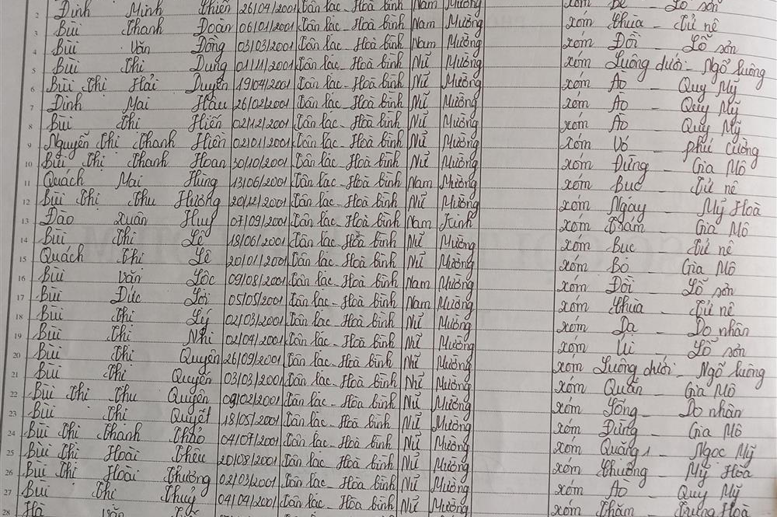 2 Đinh Minh Thiên 26/09/2001 Tân lạc - Hoà bình Nam Mường xóm Bẹ - Lỗ sơn
3 Bùi Thanh Đoàn 06/01/2001 Tân lạc - Hoà bình Nam Mường xóm Chùa - Tử nê
4 Bùi Văn Đông 03/03/2001 Tân lạc - Hoà bình Nam Mường xóm Đồi - Lỗ sơn
5 Bùi Thị Dung 01/11/2001 Tân lạc - Hoà bình Nữ Mường xóm Luông dưới - Ngổ luông
6 Bùi Thị Hải Duyên 19/04/2001 Tân lạc - Hoà bình Nữ Mường xóm Ào - Quy Mỹ
7 Đinh Mai Hậu 26/02/2001 Tân lạc - Hoà bình Nữ Mường xóm Ào - Quy Mỹ
8 Bùi Thị Hiền 02/12/2001 Tân lạc - Hoà bình Nữ Mường xóm Ào - Quy Mỹ
9 Nguyễn Thị Thanh Hiền 02/01/2001 Tân lạc - Hoà bình Nữ Mường xóm Vó - phú cường
10 Bùi Thị Thanh Hoan 30/10/2001 Tân lạc - Hoà bình Nữ Mường xóm Đừng - Gia Mô
11 Quách Mai Hùng 13/06/2001 Tân lạc - Hoà bình Nam Mường xóm Bục - Tử nê
12 Bùi Thị Thu Hương 20/12/2001 Tân lạc - Hoà bình Nữ Mường xóm Ngay - Mỹ Hoà
13 Đào Xuân Huy 07/09/2001 Tân lạc - Hoà bình Nam Kinh xóm Trám - Gia Mô
14 Bùi Thị Lê 18/06/2001 Tân lạc - Hoà bình Nữ Mường xóm Bục - Tử nê
15 Quách Thị Lê 20/10/2001 Tân lạc - Hoà bình Nữ Mường xóm Bó - Gia Mô
16 Bùi Văn Lộc 09/08/2001 Tân lạc - Hoà bình Nam Mường xóm Đồi - Lỗ sơn
17 Bùi Đức Lợi 05/05/2001 Tân lạc - Hoà bình Nam Mường xóm Chùa - Tử nê
18 Bùi Thị Lý 02/03/2001 Tân lạc - Hoà bình Nữ Mường xóm Dạ - Do nhân
19 Bùi Thị Nhi 02/04/2001 Tân lạc - Hoà bình Nữ Mường xóm Úi - Lỗ sơn
20 Bùi Thị Quyên 26/09/2001 Tân lạc - Hoà bình Nữ Mường xóm Luông dưới - Ngổ luông
21 Bùi Thị Quyên 03/03/2001 Tân lạc - Hoà bình Nữ Mường xóm Quắn - Gia Mô
22 Bùi Thị Thu Quyên 09/02/2001 Tân lạc - Hoà bình Nữ Mường xóm - Do nhân
23 Bùi Thị Quyết 18/05/2001 Tân lạc - Hoà bình Nữ Mường xóm Đừng - Gia Mô
24 Bùi Thị Thanh Thảo 04/07/2001 Tân lạc - Hoà bình Nữ Mường xóm Quăng 1 - Ngọc Mỹ
25 Bùi Thị Hoài Thêu 20/08/2001 Tân lạc - Hoà bình Nữ Mường xóm Chuông - Mỹ Hoà
26 Bùi Thị Hoài Thương 02/03/2001 Tân lạc - Hoà bình Nữ Mường xóm Ào - Quy Mỹ
27 Bùi Thị Thuỷ 04/09/2001 Tân lạc - Hoà bình Nữ Mường xóm Thăm - Trung Hoà
28 Hà Văn